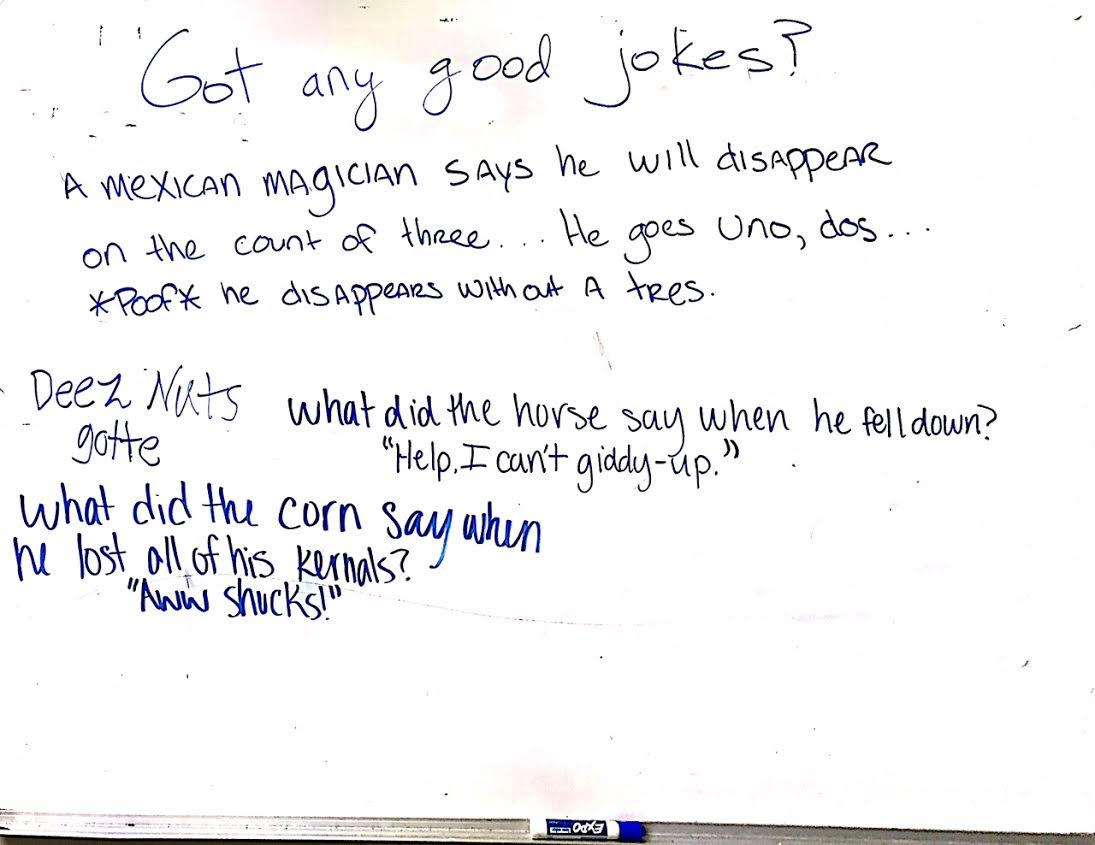 Got any good jokes?
A MEXICAN MAGICIAN SAYS he will DISAPPEAR
on the count of three... He goes Uno, dos...
*Poof* he DISAPPEARS without A tRes.
Deez Nuts
gotte
What did the horse say when he fell down?
"Help, I can't giddy-up."
What did the corn say when
he lost all of his kernals?
"Aww shucks!"
EXPO